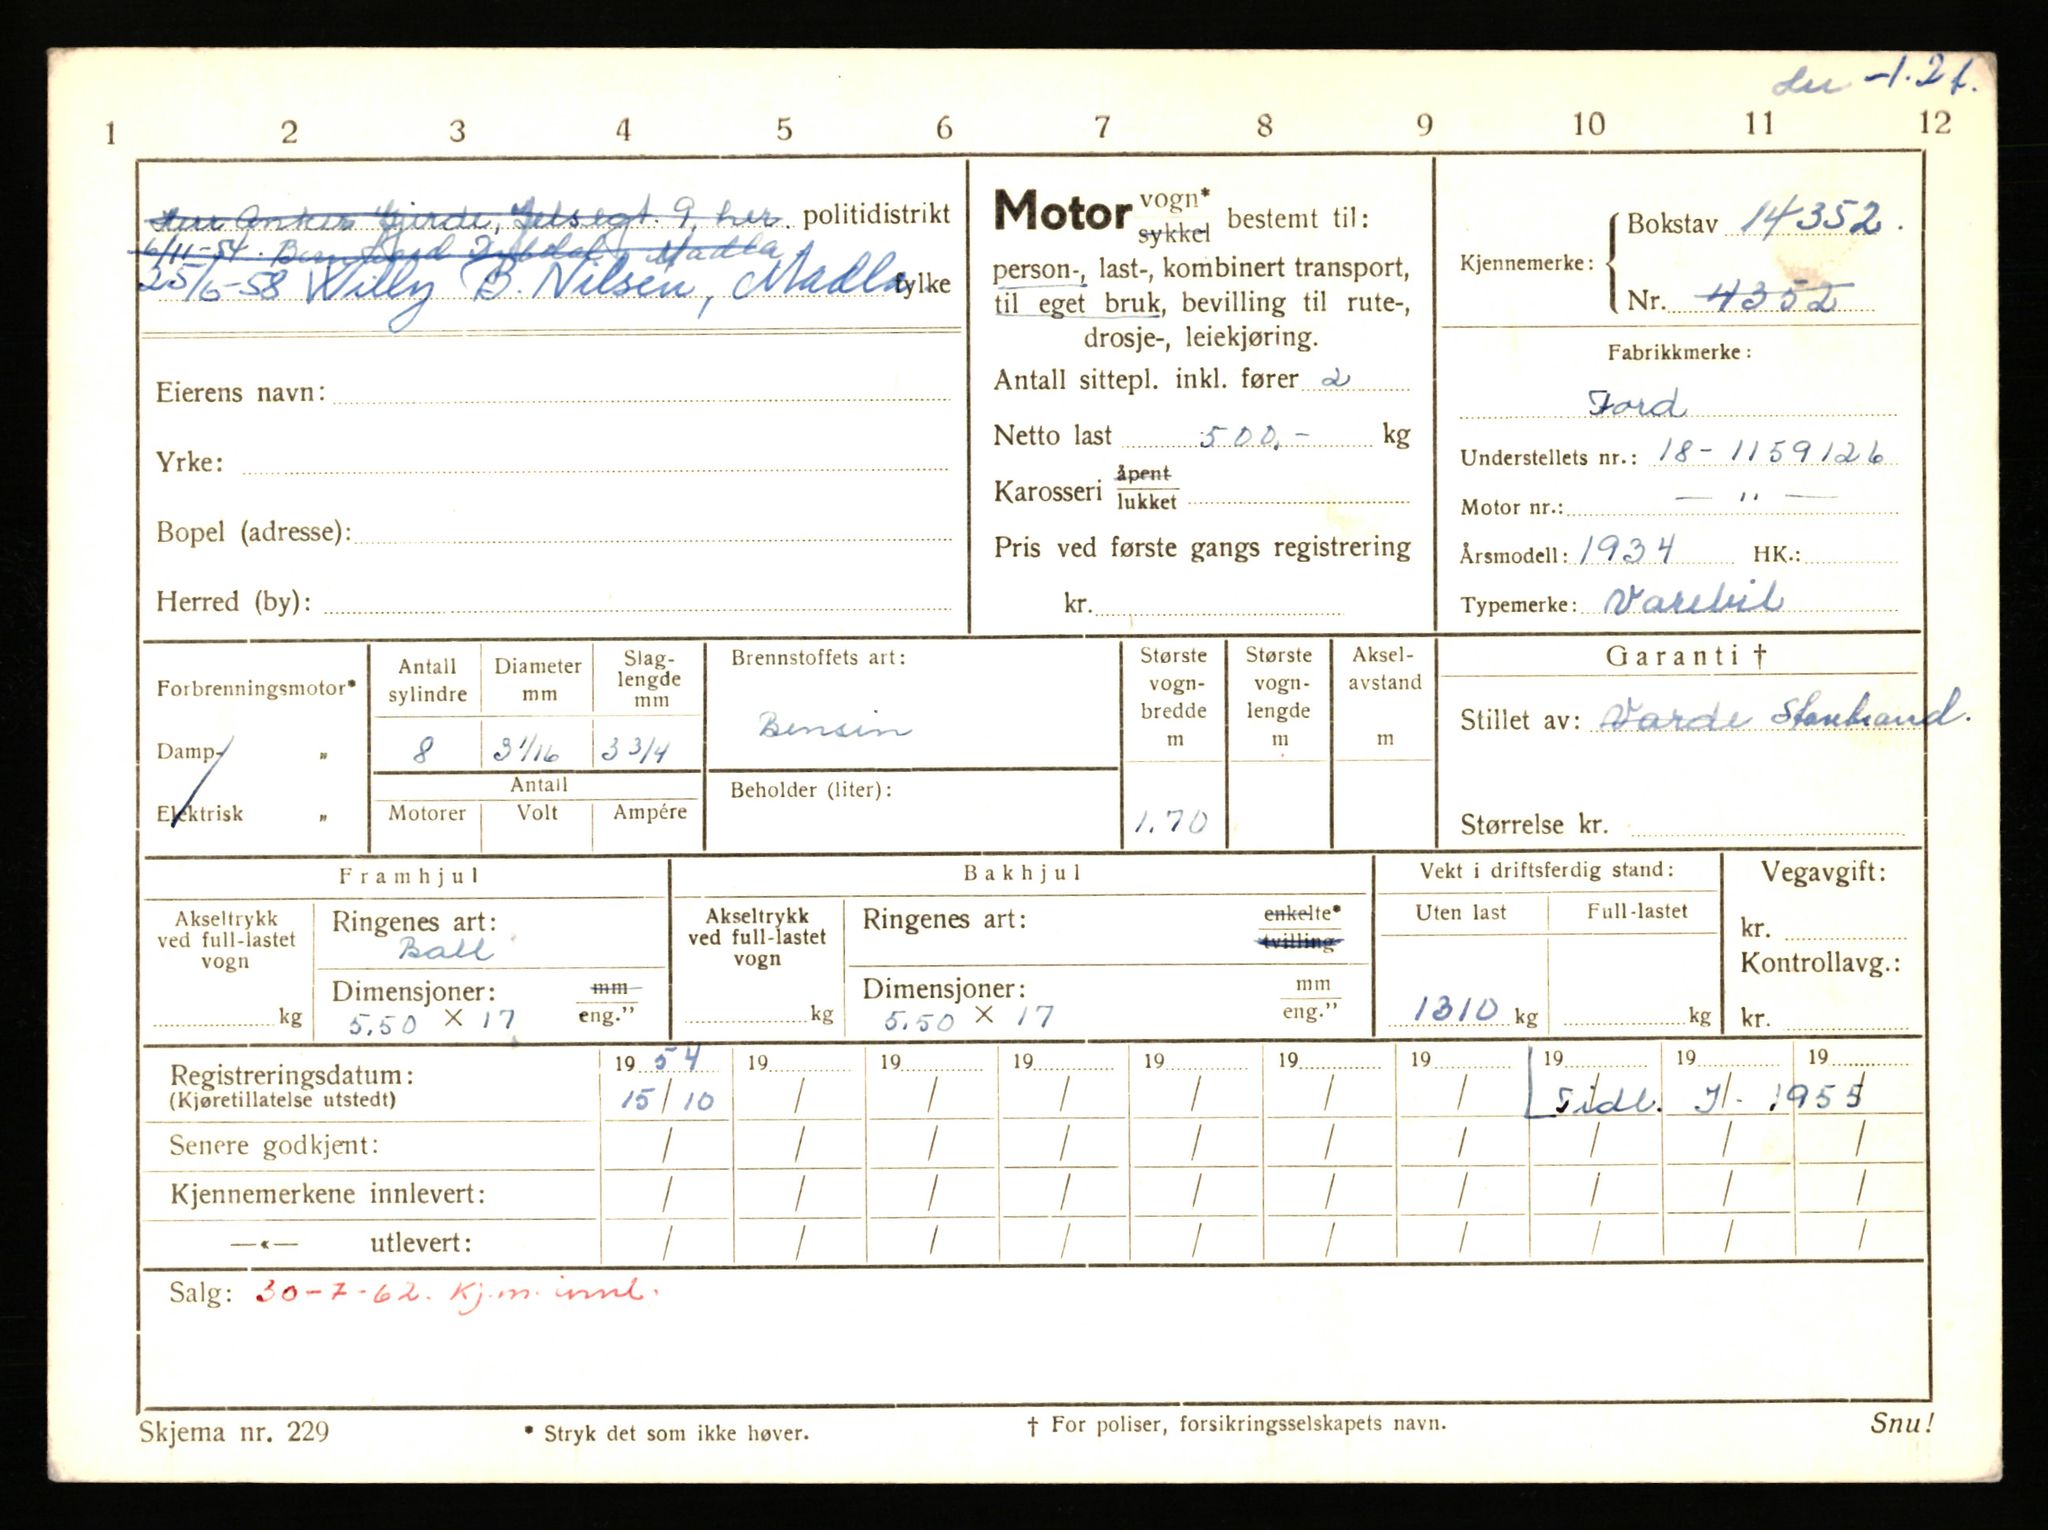 -1.2f.
1 2 3 4 5 6 7 8 9 10 11 12
Herr Anker Gjerde, Jelsegt. 9, her. politidistrikt
6/11-54. Madla
25/6-58 Willy B. Nilsen, Madla. fylke
Eierens navn:
Yrke:
Bopel (adresse):
Herred (by):
Motor vogn* sykkel bestemt til:
person-, last-, kombinert transport,
til eget bruk, bevilling til rute-,
drosje-, leiekjøring.
Antall sittepl. inkl. fører 2
Netto last 500,- kg
Karosseri åpent lukket
Pris ved første gangs registrering
kr.
Kjennemerke: Bokstav 14352.
Nr. 4352
Fabrikkmerke:
Ford
Understellets nr.: 18-1159126
Motor nr.: — " —
Årsmodell: 1934 HK.:
Typemerke: Varebil
Forbrenningsmotor*
Damp- „
Elektrisk „
Antall sylindre
8
Diameter mm
3 1/16
Slag-lengde mm
3 3/4
Antall
Motorer Volt Ampére
Brennstoffets art:
Bensin
Beholder (liter):
Største vogn-bredde m
1.70
Største vogn-lengde m
Aksel-avstand m
Garanti †
Stillet av: Varde Storebrand.
Størrelse kr.
Framhjul
Akseltrykk ved full-lastet vogn
kg
Ringenes art:
Ball
Dimensjoner: mm eng."
5.50 X 17
Bakhjul
Akseltrykk ved full-lastet vogn
kg
Ringenes art: enkelte* tvilling
Dimensjoner: mm eng."
5.50 X 17
Vekt i driftsferdig stand:
Uten last Full-lastet
1310 kg kg
Vegavgift:
kr.
Kontrollavg.:
kr.
Registreringsdatum: 1954 19 19 19 19 19 19 19 19 19
(Kjøretillatelse utstedt) 15/10 / / / / / / Tidl. 1955
Senere godkjent: / / / / / / / / / /
Kjennemerkene innlevert: / / / / / / / / / /
—«— utlevert: / / / / / / / / / /
Salg: 30-7-62. Kj.m. innl.
Skjema nr. 229 * Stryk det som ikke høver. † For poliser, forsikringsselskapets navn. Snu!